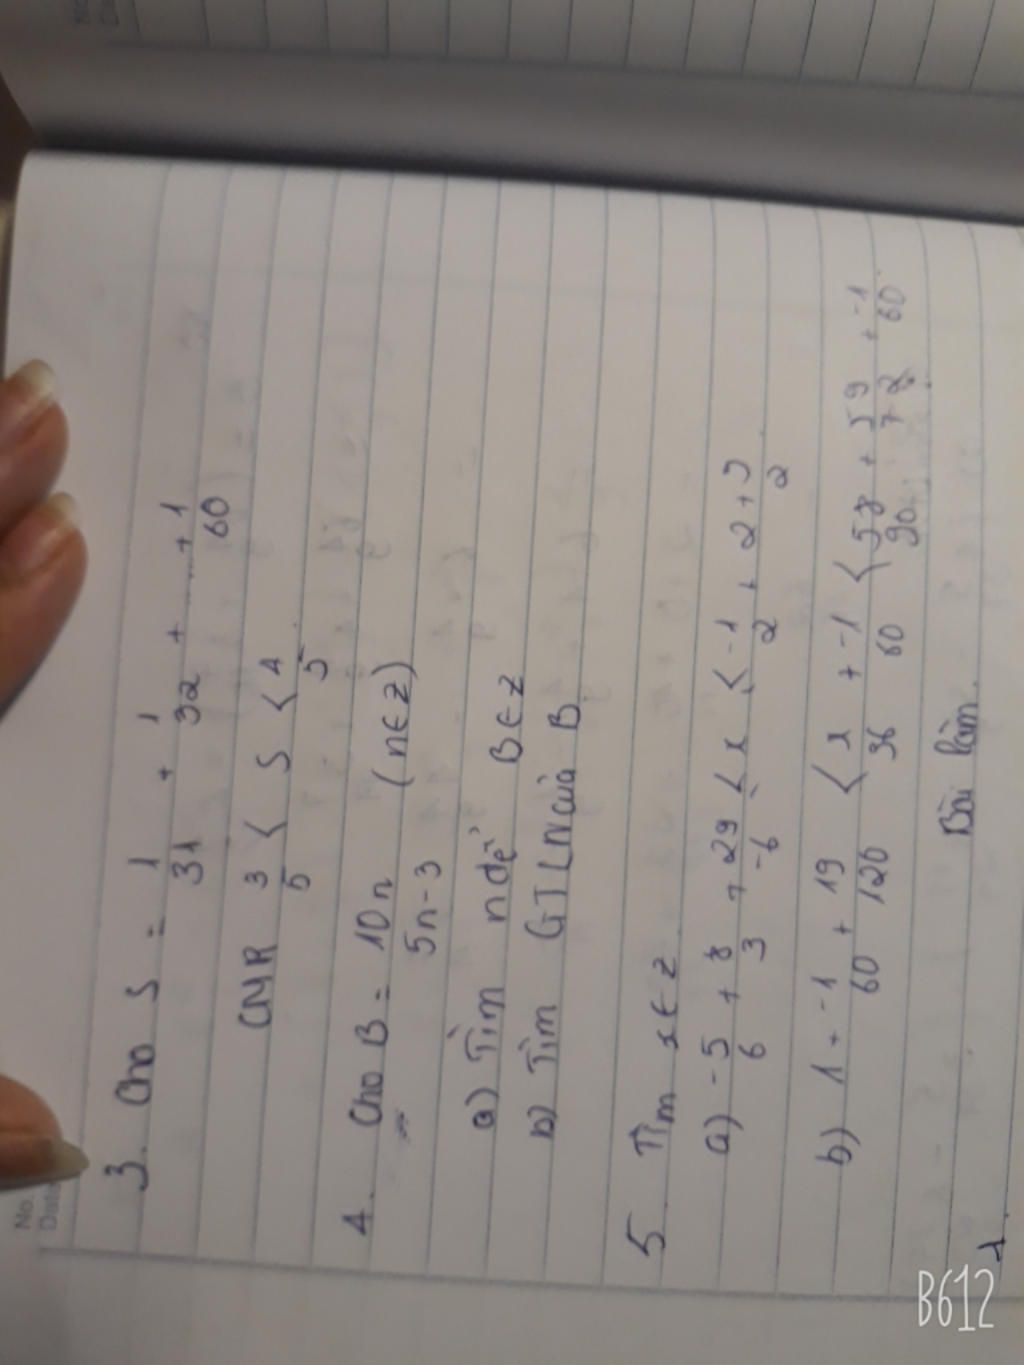 No.
Date
3. Cho S = 1/31 + 1/32 + ..... + 1/60
CMR 3/5 < S < 4/5.
4. Cho B = 10n/5n-3 (n∈z)
a) Tìm n để B∈z
b) Tìm GTLN của B
5 Tìm x∈z
a) -5/6 + 8/3 + 29/-6 < x < -1/2 + 2 + 5/2.
b) 1 + -1/60 + 19/120 < x/36 + -1/60 < 58/90 + 59/72 + -1/60.
Bài làm.
1.
B612